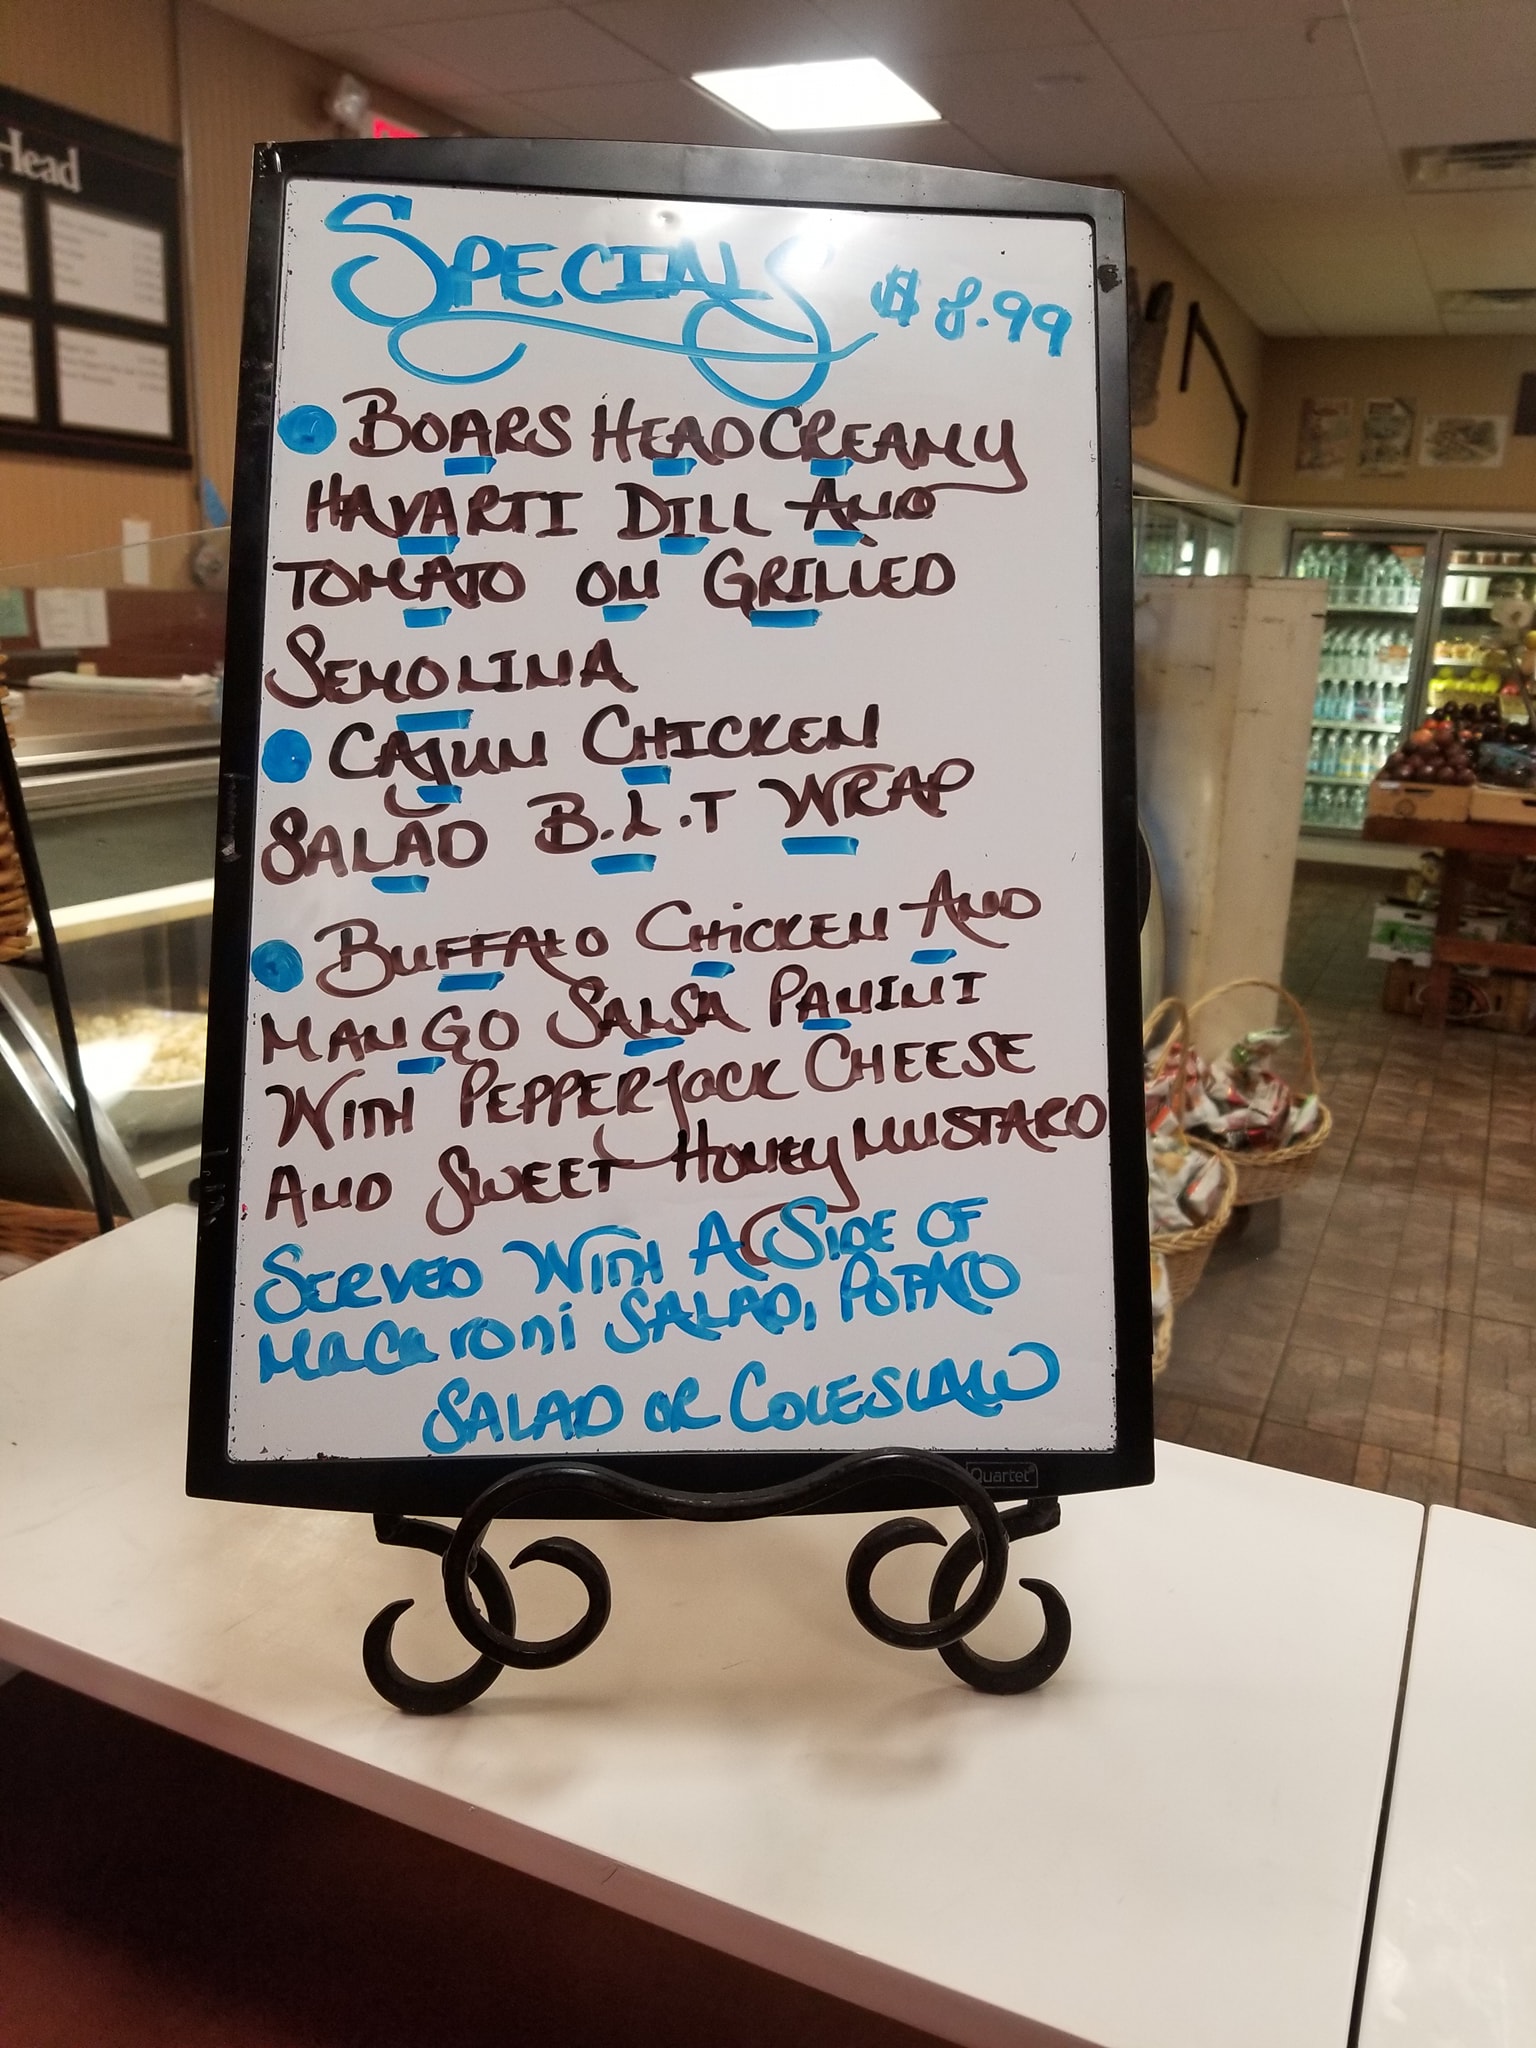 Head
SPECIALS $8.99
BOARS HEAD CREAMY
HAVARTI DILL AND
TOMATO ON GRILLED
SEMOLINA
CAJUN CHICKEN
SALAD B.L.T WRAP
BUFFALO CHICKEN AND
MANGO SALSA PANINI
WITH PEPPERJACK CHEESE
AND SWEET HONEY MUSTARD
SERVED WITH A SIDE OF
MACARONI SALAD, POTATO
SALAD OR COLESLAW
Quartet